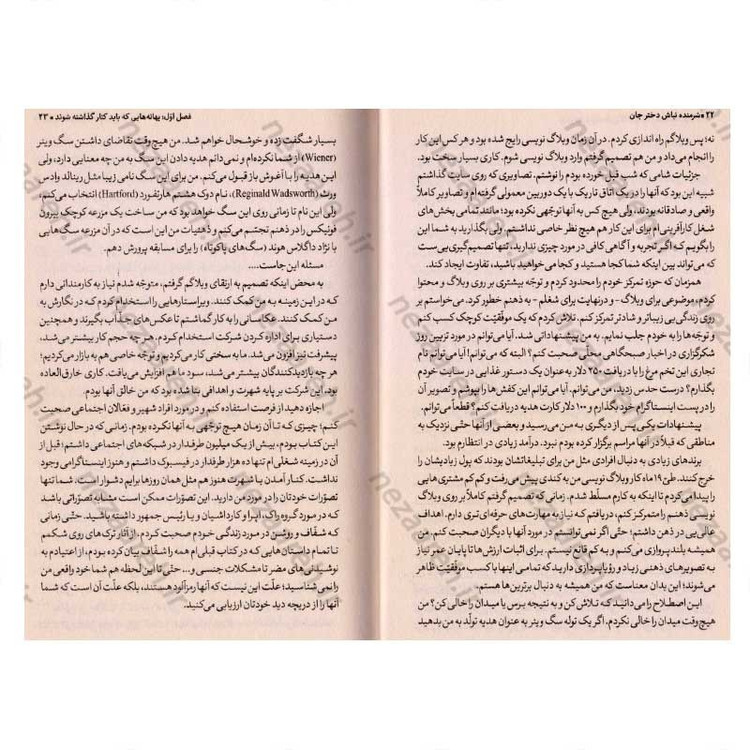 ۲۲ • شرمنده نباش دختر جان
نه؛ پس وبلاگم راه اندازی کردم. در آن زمان وبلاگ نویسی رایج شده بود و هر کس این کار
را انجام می‌داد و من هم تصمیم گرفتم وارد وبلاگ نویسی شوم. کاری بسیار سخت بود.
جزئیات شامی که شب قبل خورده بودم را نوشتم. تصاویری که روی سایت گذاشتم
شبیه این بود که آنها را در یک اتاق تاریک با یک دوربین معمولی گرفته‌ام و تصاویر کاملاً
واقعی و صادقانه بودند، ولی هیچ کس به آنها توجّهی نکرده بود؛ مانند تمامی بخش‌های
شغل کارآفرینی‌ام برای این کار هم هیچ نظر خاصی نداشتم. ولی بگذارید به شما این
را بگویم که اگر تجربه و آگاهی کافی در مورد چیزی ندارید، تنها تصمیم‌گیری بی‌ست
که می‌تواند بین اینکه شما کجا هستید و کجا می‌خواهید باشید، تفاوت ایجاد کند.
همزمان که حوزه تمرکز خودم را محدود کردم و توجّه بیشتری به روی وبلاگ و محتوا
کردم، موضوعی برای وبلاگ – و در نهایت برای شغلم – به ذهنم خطور کرد. می‌خواستم بر
روی زندگی بی زیباتر و شادتر تمرکز کنم. تلاش کردم که یک موفقیّت کوچک کسب کنم
و توجّه‌ها را به خودم جلب نمایم. به من پیشنهاداتی شد. آیا می‌توانم در مورد تزیین روز
شکرگزاری در اخبار صبحگاهی محلّی صحبت کنم؟ البته که می‌توانم! آیا می‌توانم نام
تجاری این تخم مرغ را با دریافت ۲۵۰ دلار به عنوان یک دستور غذایی در سایت خودم
بگذارم؟ درست حدس زدید، من می‌توانم. آیا می‌توانم این کفش‌ها را بپوشم و تصویر آن
را در پست اینستاگرام خود بگذارم و ۱۰۰ دلار کارت هدیه دریافت کنم؟ قطعاً می‌توانم.
پیشنهادات یکی پس از دیگری به من می‌رسید و بعضی از آنها حتّی نزدیک به
مناطقی که قبلاً در آنها مراسم برگزار کرده بودم نبود. درآمد زیادی در انتظارم بود.
برندهای زیادی به دنبال افرادی مثل من برای تبلیغاتشان بودند که پول زیادیشان را
خرج کنند. طیّ ۹ ماه کار وبلاگ نویسی من به کندی پیش می‌رفت و کم کم مشتری‌هایی
را پیدا می‌کردم تا اینکه به کارم مسلّط شدم. زمانی که تصمیم گرفتم کاملاً بر روی وبلاگ
نویسی ذهنم را متمرکز کنم، دریافتم که نیاز به مهارت‌های حرفه‌ای‌تری دارم. اهداف
عالی‌یی در ذهن داشتم؛ حتّی اگر تمام نمی‌کردم. در مورد آنها با دیگران صحبت کنم، من
همیشه بلند پروازی می‌کنم و به کم قانع نیستم. برای اثبات ارزش‌ها تا پایان عمر نیاز
به تصویرهای ذهنی زیاد و رؤیاپردازی دارید که تمامی اینها با کسب موفقیّت ظاهر
می‌شوند؛ این بدان معناست که من همیشه به دنبال برترین‌ها هستم.
این اصطلاح را می‌دانید که تلاش کن و به نتیجه برس یا میدان را خالی کن؟ من
هیچ وقت میدان را خالی نکردم. اگر یک توله سگ وینر به عنوان هدیه تولّد به من بدهید
فصل اوّل: بهانه‌هایی که باید کنار گذاشته شوند • ۲۳
بسیار شگفت زده و خوشحال خواهم شد. من هیچ وقت تقاضای داشتن سگ وینر
(Wiener) از شما نکرده‌ام و نمی‌دانم هدیه دادن این سگ به من چه معنایی دارد، ولی
این هدیه را با آغوش باز قبول می‌کنم. من برای این سگ نامی زیبا مثل رینالد وادس
ورث (Reginald Wadsworth)، نام دوک هشتم هارتفورد (Hartford) انتخاب می‌کنم،
ولی این نام تا زمانی روی این سگ خواهد بود که من ساخت یک مزرعه کوچک بیرون
فونیکس را در ذهنم تجسّم می‌کنم و ذهنیات من این است که در آن مزرعه سگ‌هایی
با نژاد داگلاس هوند (سگ‌های پاکوتاه) را برای مسابقه پرورش دهم.
مسئله این جاست....
به محض اینکه تصمیم به ارتقای وبلاگم گرفتم، متوجّه شدم نیاز به کارمندانی دارم
که در این زمینه به من کمک کنند. ویراستارهایی را استخدام کردم که در نگارش به
من کمک کنند. عکاسانی را به کار گماشتم تا عکس‌های جذّاب بگیرند و همچنین
دستیاری برای اداره کردن شرکت استخدام کردم. هر چه حجم کار بیشتر می‌شد،
پیشرفت نیز افزون می‌شد. ما به سختی کار می‌کردیم و توجّه خاصی هم به بازار می‌کردیم؛
هر چه بازدیدکنندگان بیشتر می‌شد، سود ما هم افزایش می‌یافت. کاری خارق‌العاده
بود. این شرکت بر پایه شهرت و اهدافی بنا شده، بود که من خالق آنها بودم.
اجازه دهید از فرصت استفاده کنم و در مورد افراد شهیر و فعّالان اجتماعی صحبت
کنم؛ چیزی که تا آن زمان هیچ توجّهی به آنها نکرده بودم. زمانی که در حال نوشتن
این کتاب بودم، بیش از یک میلیون طرفدار در شبکه‌های اجتماعی داشتم؛ قبل از
آن در زمینه شغلی‌ام تنها ده هزار طرفدار در فیسبوک داشتم و هنوز اینستاگرامی وجود
نداشت. کنار آمدن با شهرت هنوز هم مثل همان روزها برایم دشوار است. شما تنها
تصوّرات خودتان را در مورد من دارید. این تصوّرات ممکن است مشابه تصوّراتی باشد
که در مورد گروه راک، اپرا و کارداشیان و یا رئیس جمهور داشته باشید. حتّی زمانی
که شفّاف و روشن در مورد زندگی خودم صحبت کردم، از آثار ترک‌های روی شکمم
تا تمام داستان‌هایی که در کتاب قبلی‌ام همه را شفّاف بیان کرده بودم، از اعتیادم به
نوشیدنی‌های مضر تا مشکلات جنسی و... حتّی تا این لحظه هم شما خود واقعی من
را نمی‌شناسید؛ علّت این نیست که آنها رمزآلود هستند، بلکه علّت آن است که شما
آنها را از دریچه دید خودتان ارزیابی می‌کنید.
nezaareh.ir